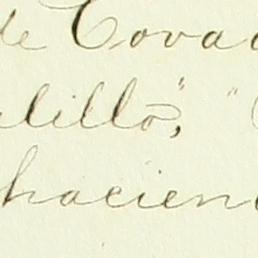 de Covad
lillo", "
hacien